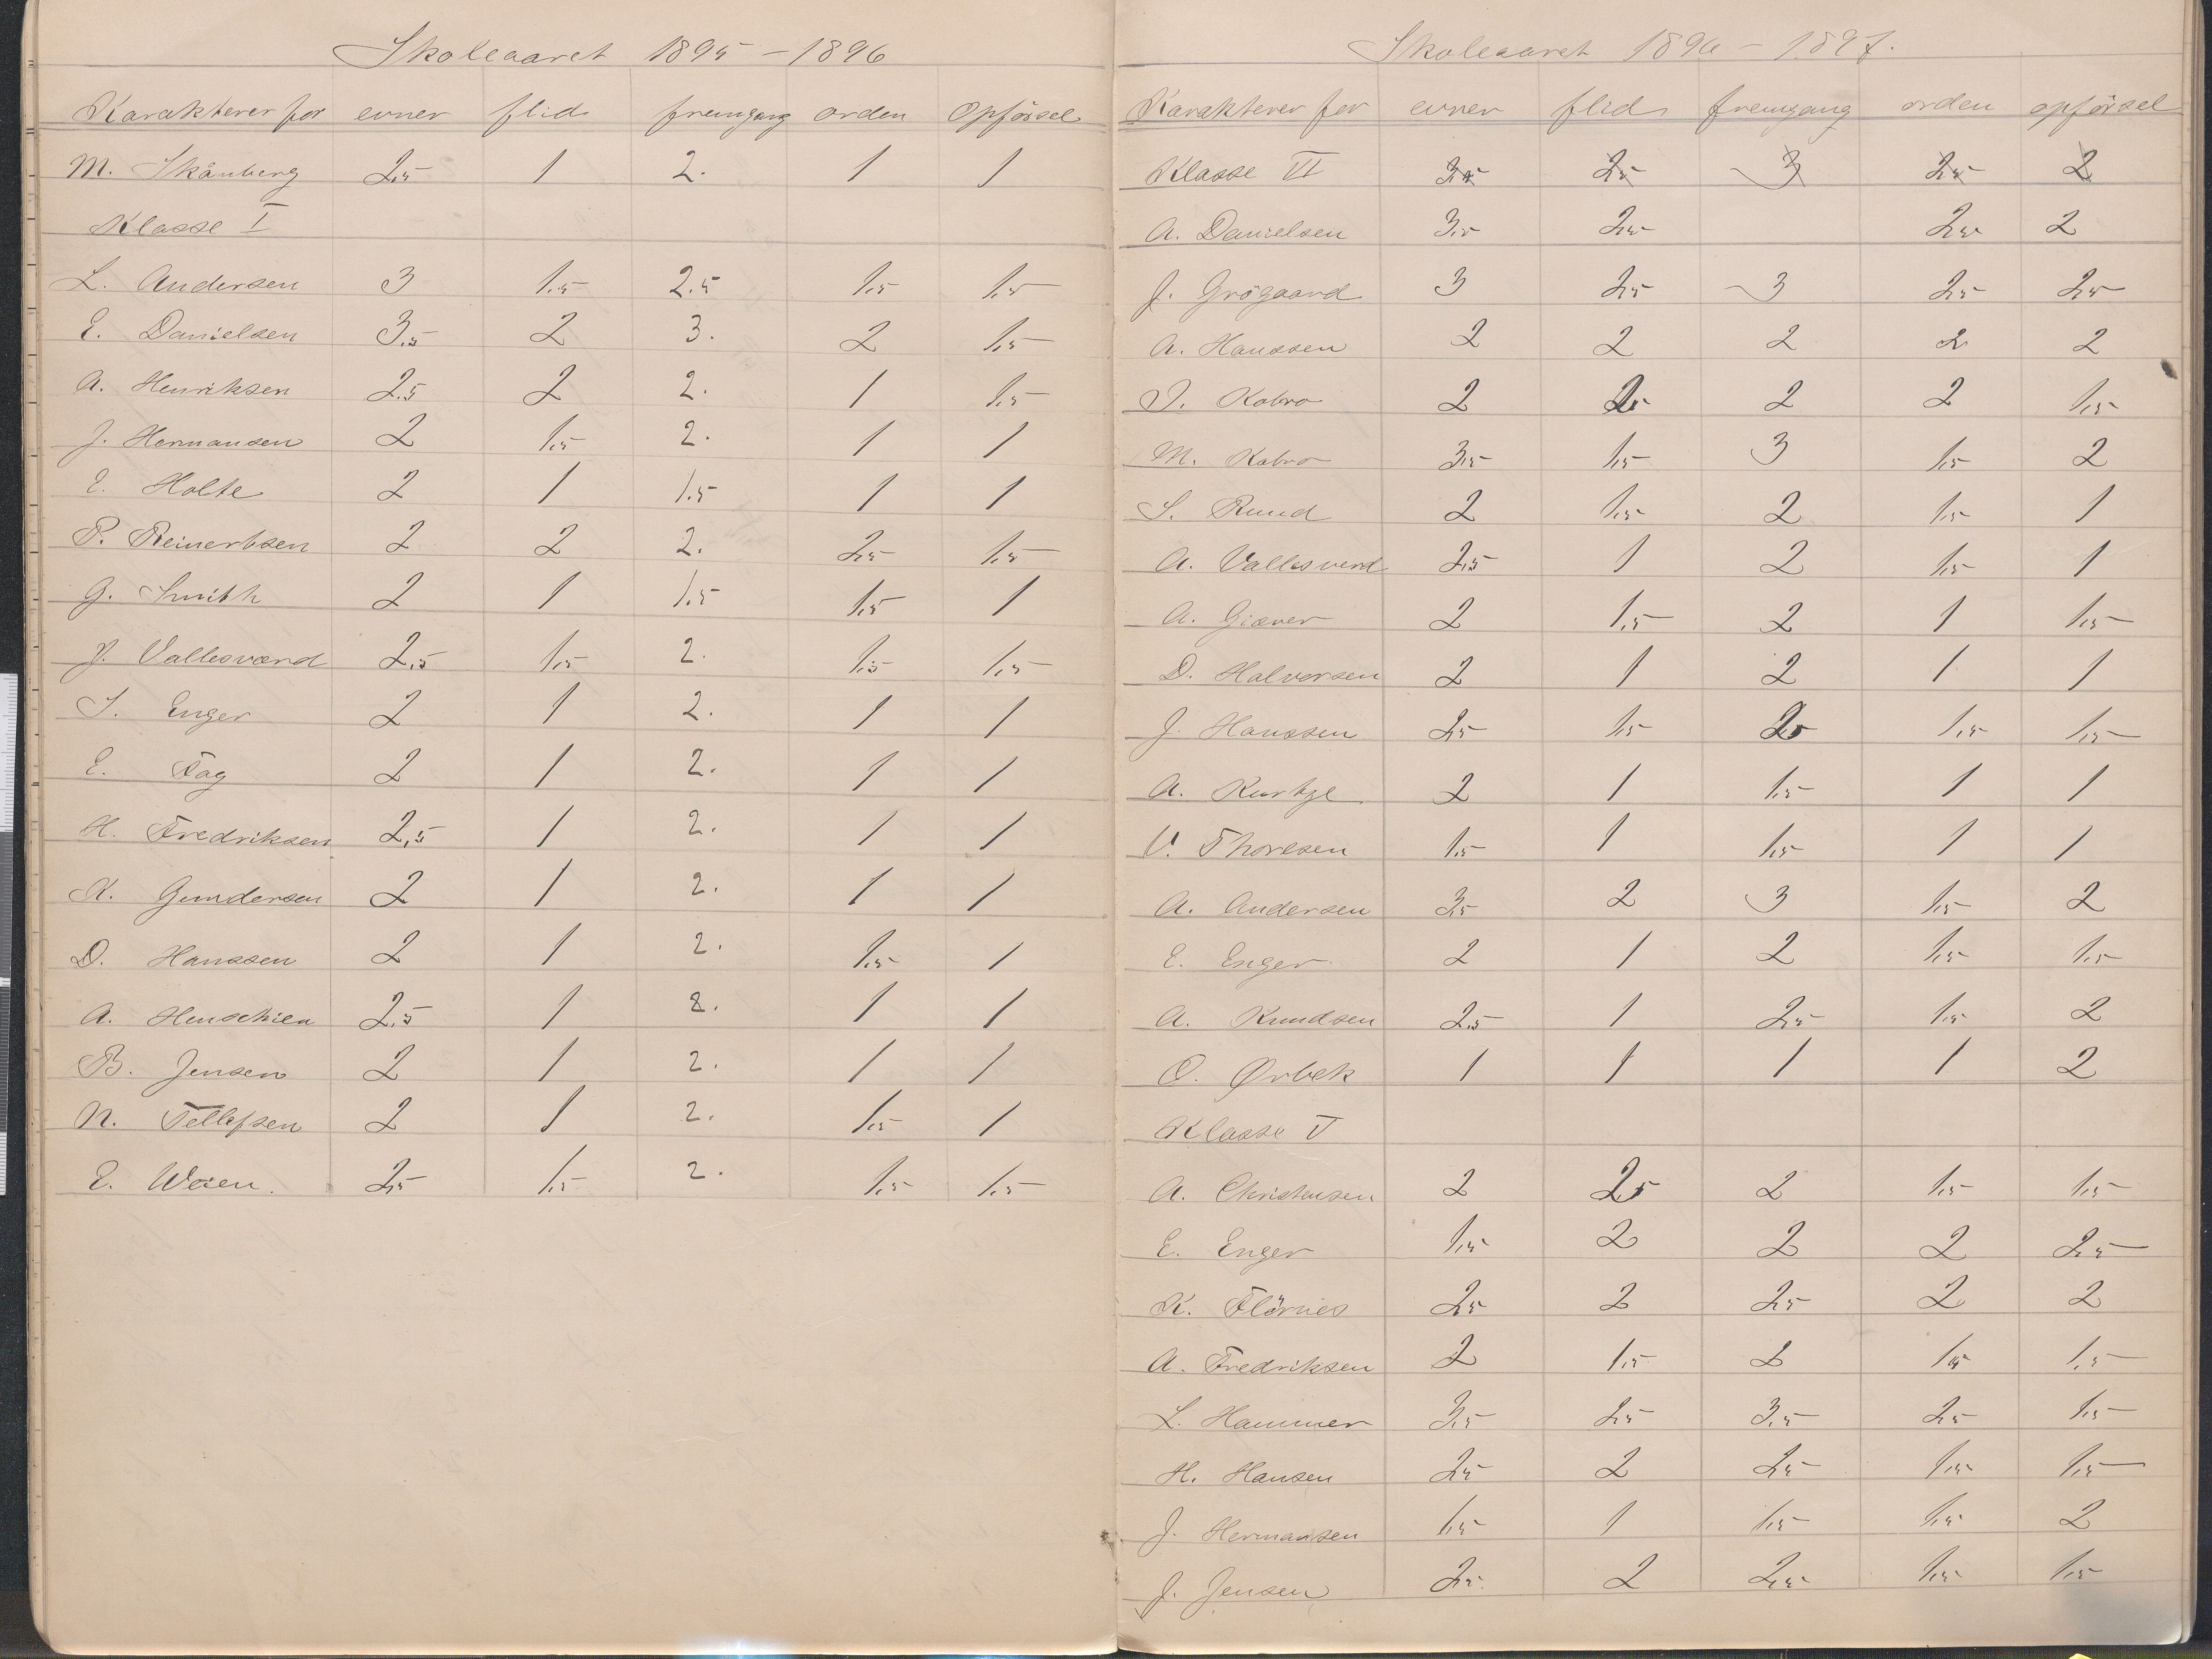 Skoleaaret 1895 - 1896
Karakterer for evner flid fremgang orden Opförsel
M. Skånberg 2,5 1 2. 1 1
Klasse I
L. Andersen 3 1.5 2.5 1,5 1,5
E. Danielsen 3,5 2 3. 2 1,5
A. Henriksen 2.5 2 2. 1 1,5
J. Hermansen 2 1,5 2. 1 1
E. Holte 2 1 1.5 1 1
P. Reinertsen 2 2 2. 2,5 1,5
G. Smith 2 1 1.5 1,5 1
J. Vallesværd 2,5 1,5 2. 1,5 1,5
S. Enger 2 1 2. 1 1
E. Fag 2 1 2. 1 1
H. Fredriksen 2,5 1 2. 1 1
K. Gundersen 2 1 2. 1 1
D. Hanssen 2 1 2. 1,5 1
A. Henschien 2,5 1 2. 1 1
B. Jensen 2 1 2. 1 1
N. Tellefsen 2 1 2. 1,5 1
E. Weien. 2,5 1,5 2. 1,5 1,5
Skoleaaret 1896 - 1897.
Karakterer for evner flid fremgang orden opförsel
Klasse VI 3,5 2,5 3 2,5 2
A. Danielsen 3,5 2,5 2,5 2
J. Grögaard 3 2,5 3 2,5 2,5
A. Hanssen 2 2 2 2 2
I. Kobro 2 2 2 1,5
M. Kobro 3,5 1,5 3 1,5 2
S. Ruud 2 1,5 2 1,5 1
A. Vallesverd 2,5 1 2 1,5 1
A. Giæver 2 1,5 2 1 1,5
D. Halvorsen 2 1 2 1 1
J. Hanssen 2,5 1,5 1,5 1,5
A. Kurtze 2 1 1,5 1 1
V. Thoresen 1,5 1 1,5 1 1
A. Andersen 3,5 2 3 1,5 2
E. Enger 2 1 2 1,5 1,5
A. Knudsen 2,5 1 2,5 1,5 2
O. Ørbek 1 1 1 1 2
Klasse V
A. Christensen 2 2,5 2 1,5 1,5
E. Enger 1,5 2 2 2 2,5
K. Flörnes 2,5 2 2,5 2 2
A. Fredriksen 2 1,5 2 1,5 1,5
L. Hammer 3,5 2,5 3,5 2,5 1,5
H. Hansen 2,5 2 2,5 1,5 1,5
J. Hermansen 1,5 1 1,5 1,5 2
J. Jensen 2,5 2 2,5 1,5 1,5